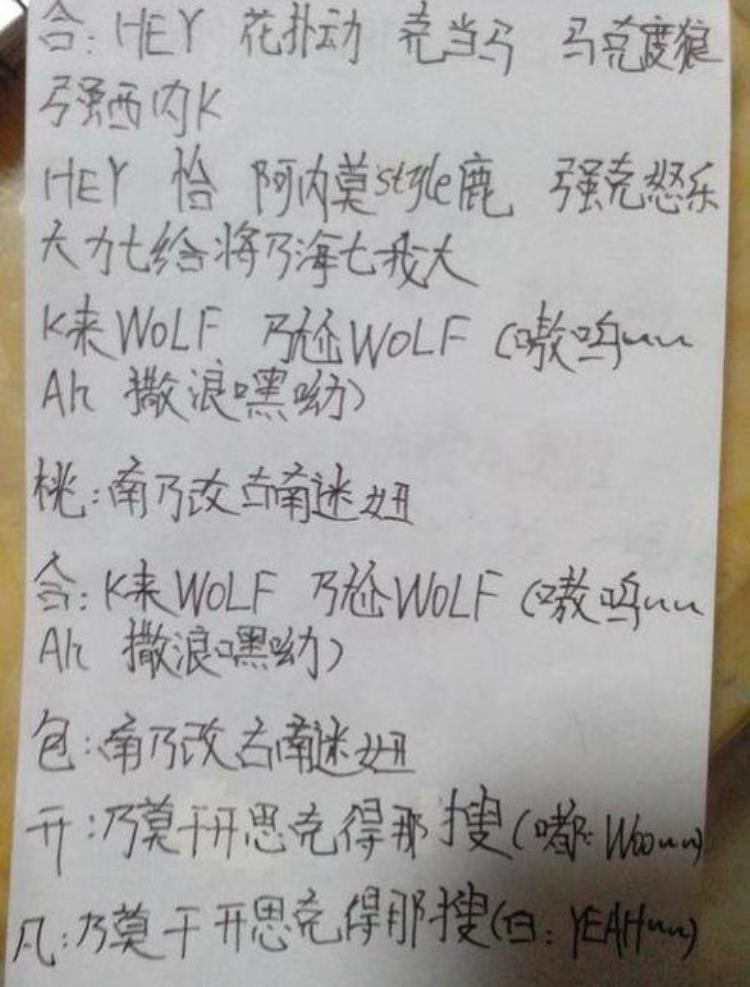 合: HEY 花扑动 克当马 马克度狼
强西内K
HEY 恰 阿内莫style鹿 强克怒乐
大力七给将乃海七我大
K来WOLF 乃尬WOLF (嗷呜~~
Ah 撒浪嘿呦)
桃:南乃改古南迷妞
合: K来WOLF 乃尬WOLF (嗷呜~~
Ah 撒浪嘿呦)
包:南乃改古南迷妞
开:乃莫干开思克得那搜(嘟: Woo~~)
凡:乃莫干开思克得那搜(白: YEAH~~)